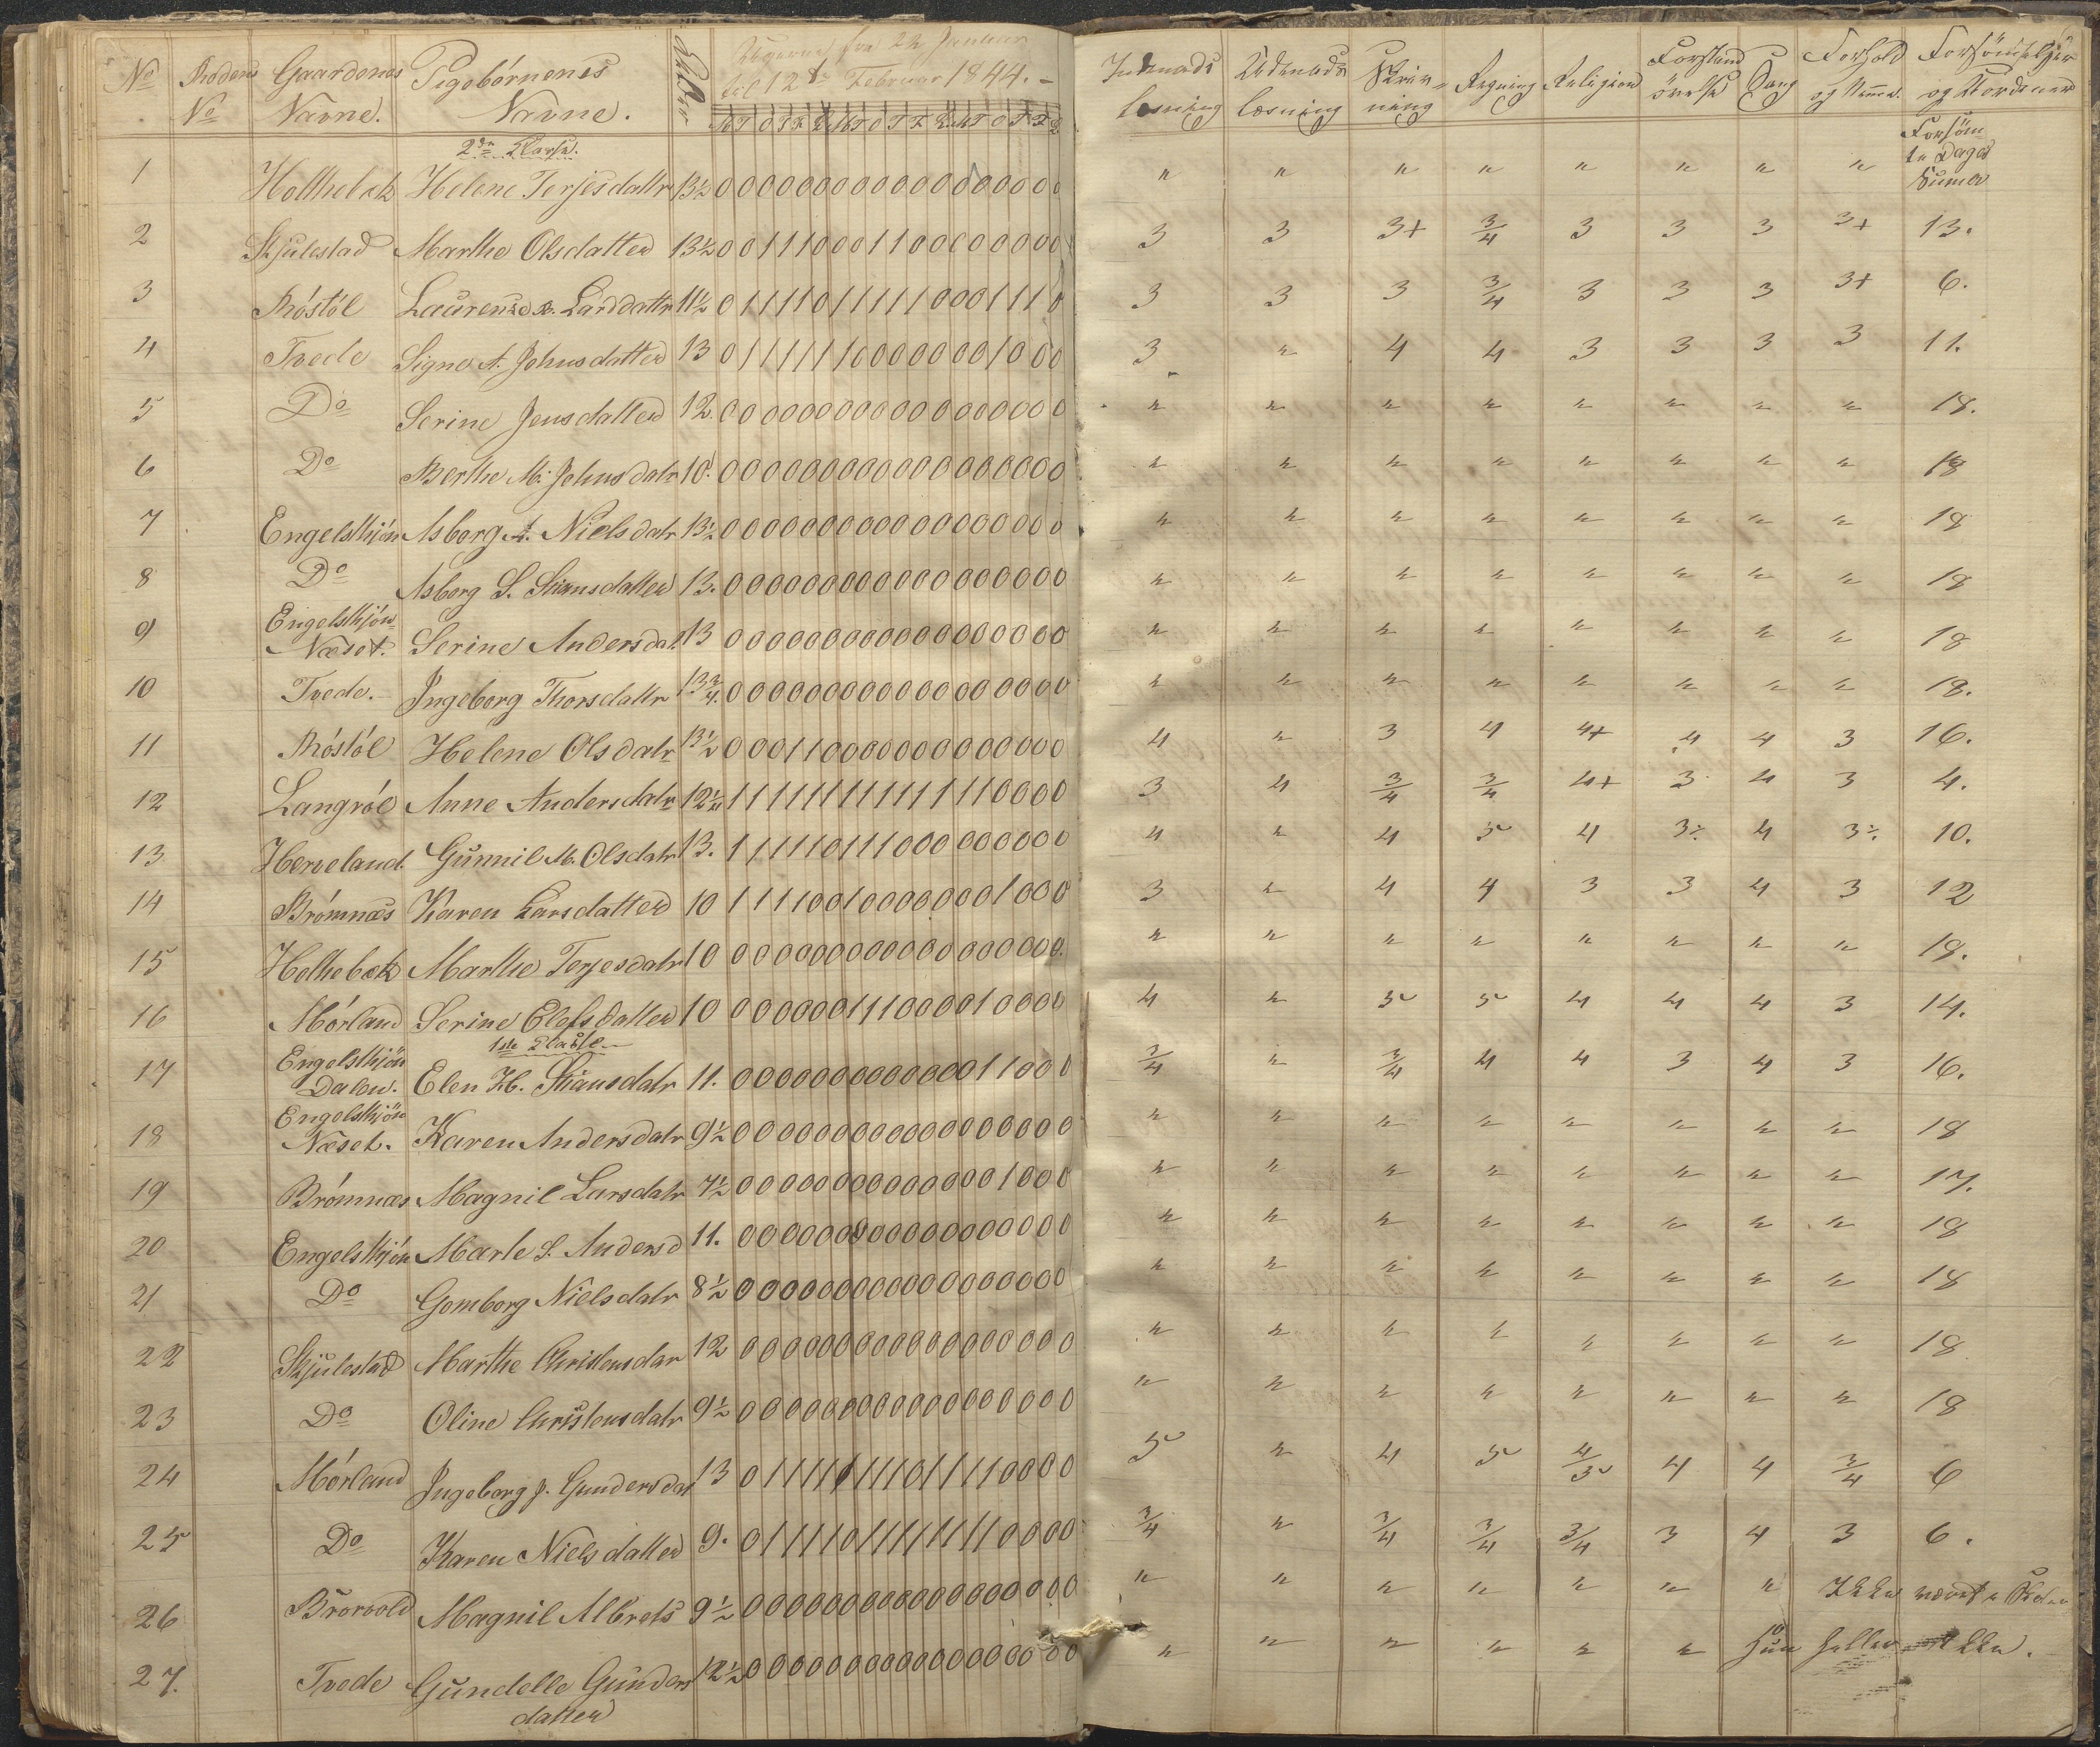 No Rodens Gaardenes Pigebørnenes Alder Ugerne fra 22 Januar Indenads Udenads Skriv= Regning Religion Forstand Sang Forhold Forsømmelser
No Navne. Navne. til 12te Februar 1844. – læsning læsning ning øvelse og Nemme. og Værdsmer
M T O T F L M T O T F L M T O T F L
2den Classe. Forsøm-
te Dages
Sumer
1 Holthebek Helene Terjesdattr 13½ 0 0 0 0 0 0 0 0 0 0 0 0 0 0 0 0 0 0 " " " " " " " "
2 Skjulestad Marthe Olsdatter 13½ 0 0 1 1 1 0 0 0 1 1 0 0 0 0 0 0 0 0 3 3 3+ 3/4 3 3 3 3+ 13.
3 Røstøl Laurense K. Larsdattr 11½ 0 1 1 1 1 0 1 1 1 1 1 0 0 0 1 1 1 0 3 3 3 3/4 3 3 3 3+ 6.
4 Tvede Signe A. Johnsdatter 13 0 1 1 1 1 1 1 0 0 0 0 0 0 0 1 0 0 0 3 " 4 4 3 3 3 3 11.
5 Do Serine Jensdatter 12. 0 0 0 0 0 0 0 0 0 0 0 0 0 0 0 0 0 0 " " " " " " " " 18.
6 Do Berthe M. Johnsdatr 10. 0 0 0 0 0 0 0 0 0 0 0 0 0 0 0 0 0 0 " " " " " " " " 18
7 Engelskjøn Asborg A. Nielsdatr 13½ 0 0 0 0 0 0 0 0 0 0 0 0 0 0 0 0 0 0 " " " " " " " " 18
8 Do Asborg S. Stiansdatter 13. 0 0 0 0 0 0 0 0 0 0 0 0 0 0 0 0 0 0 " " " " " " " " 18
9 Engelskjøn
Næset. Serine Andersdat. 13 0 0 0 0 0 0 0 0 0 0 0 0 0 0 0 0 0 0 " " " " " " " " 18
10 Tvede. Ingeborg Thorsdattr 13¾. 0 0 0 0 0 0 0 0 0 0 0 0 0 0 0 0 0 0 " " " " " " " " 18.
11 Røstøl Helene Olsdatr 13½ 0 0 0 1 1 0 0 0 0 0 0 0 0 0 0 0 0 0 4 " 3 4 4+ 4 4 3 16.
12 Langrøe Anne Andersdatr 12¼ 1 1 1 1 1 1 1 1 1 1 1 1 1 1 0 0 0 0 3 4 3/4 3/4 4+ 3 4 3 4.
13 Herveland. Gunnil M. Olsdatr 13. 1 1 1 1 1 0 1 1 1 0 0 0 0 0 0 0 0 0 4 " 4 5 4 3÷ 4 3÷ 10.
14 Brømnæs Karen Larsdatter 10 1 1 1 1 0 0 1 0 0 0 0 0 0 0 1 0 0 0 3 " 4 4 3 3 4 3 12
15 Holthebek Marthe Terjesdatr 10 0 0 0 0 0 0 0 0 0 0 0 0 0 0 0 0 0 0. " " " " " " " " 18.
16 Mørland Serine Elefsdatter 10 0 0 0 0 0 0 1 1 1 0 0 0 0 1 0 0 0 0 4 " 5 5 4 4 4 3 14.
1ste Classe
17 Engelskjøn
Dalen. Elen H. Stiansdatr 11. 0 0 0 0 0 0 0 0 0 0 0 0 0 1 1 0 0 0 3/4 " 3/4 4 4 3 4 3 16.
18 Engelskjøn
Næset. Karen Andersdatr 9½ 0 0 0 0 0 0 0 0 0 0 0 0 0 0 0 0 0 0 " " " " " " " " 18
19 Brømnæs Magnil Larsdatr 7½ 0 0 0 0 0 0 0 0 0 0 0 0 0 0 1 0 0 0 " " " " " " " " 17.
20 Engelskjøn Marte S. Andersd 11. 0 0 0 0 0 0 0 0 0 0 0 0 0 0 0 0 0 0 " " " " " " " " 18
21 Do Gomborg Nielsdatr 8½ 0 0 0 0 0 0 0 0 0 0 0 0 0 0 0 0 0 0 " " " " " " " " 18
22 Skjulestad Marthe Christensdar 12 0 0 0 0 0 0 0 0 0 0 0 0 0 0 0 0 0 0 " " " " " " " " 18
23 Do Oline Christensdatr 9½ 0 0 0 0 0 0 0 0 0 0 0 0 0 0 0 0 0 0 " " " " " " " " 18
24 Mørland Ingeborg J. Gundersdat 13 0 1 1 1 1 1 1 1 1 0 1 1 1 1 0 0 0 0 5 " 4 5 4/5 4 4 3/4 6
25 Do Karen Nielsdatter 9. 0 1 1 1 1 0 1 1 1 1 1 1 1 1 0 0 0 0 3/4 " 3/4 3/4 3/4 3 4 3 6.
26 Brørvold Magnil Albrets 9½ 0 0 0 0 0 0 0 0 0 0 0 0 0 0 0 0 0 0 " " " " " " " Ikke været i Skolen
27. Tvede Gundelle Gunders 12½ 0 0 0 0 0 0 0 0 0 0 0 0 0 0 0 0 0 0 " " " " " " hun heller ikke.
datter